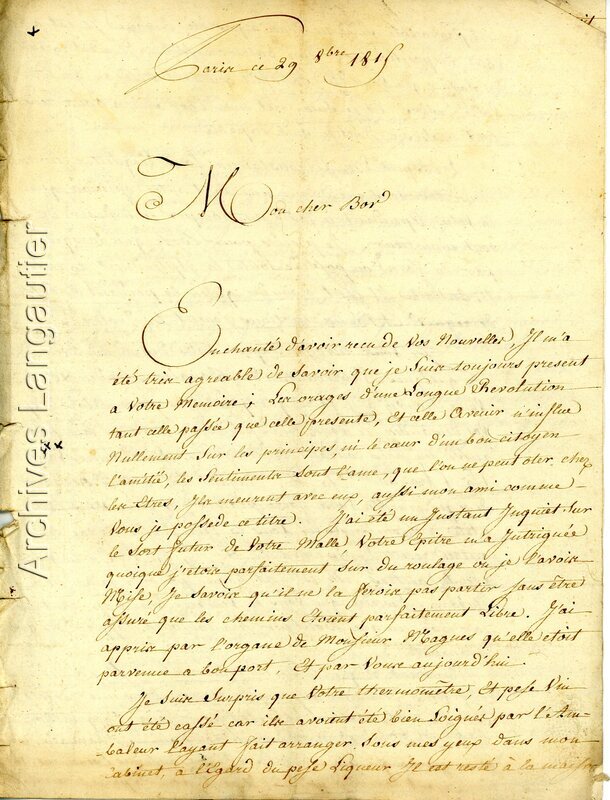 Paris ce 29 8bre 1815
Mon cher Bord
Enchanté d'avoir recu de Vos Nouvelles, Il m'a
été tres agreable de Savoir que je Suis toujours present
a Votre Memoire; Les orages d'une Longue Revolution
tant celle passée que celle presente, Et celle avenir n'influe
Nullement Sur les principes, ni le cœur d'un bon citoyen
l'amitié, les Sentiments Sont l'ame, que l'on ne peut oter chez
les Etres, Ils meurent avec eux, aussi mon ami comme
Vous je possede ce titre. J'ai été un Instant Inquiet Sur
le Sort futur de Votre Malle, Votre Epitre m'a Intriguée
quoique j'etois parfaitement Sur du roulage ou je l'avois
Mise Je Savois qu'il ne la feroit pas partir Sans être
assuré que les chemins Etoient parfaitement Libre. J'ai
appris par l'organe de Monsieur Magues qu'elle etoit
parvenue a bon port, Et par Vous aujourd'hui.
Je Suis Surpris que Votre thermomêtre, Et pese Vin
ont été cassé car ils avoient été bien Soignés par l'Em-
baleur l'ayant fait arranger Sous mes yeux dans mon
Cabinet, à l'Egard du pese Liqueur Il est resté à la maison
Archives Langautier